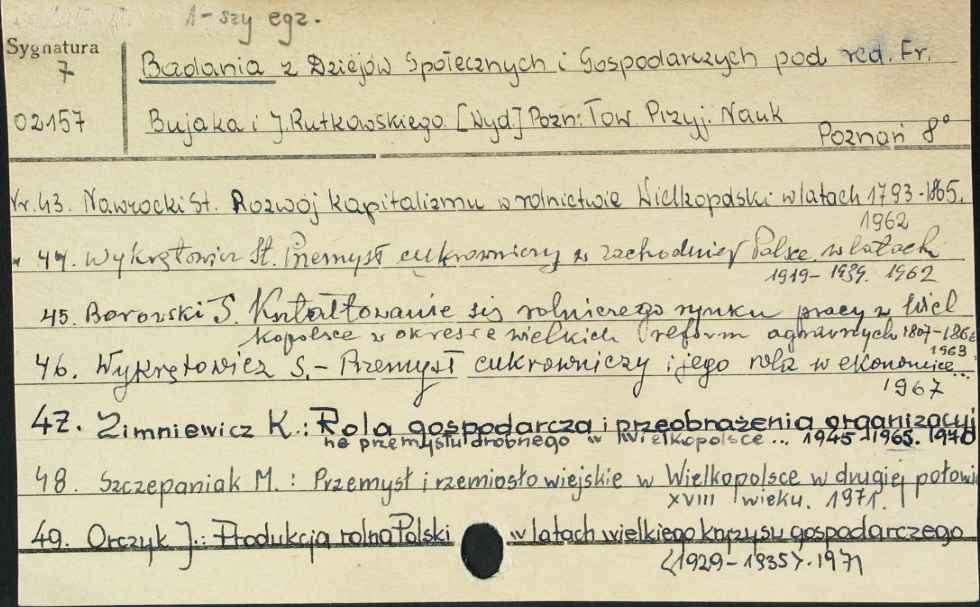 1-szy egz.
Sygnatura
7 Badania z Dziejów Społecznych i Gospodarczych pod red. Fr.
02157 Bujaka i J. Rutkowskiego. [Wyd] Pozn. Tow. Przyj. Nauk
Poznań 8°
Nr. 43. Nawrocki St. Rozwój kapitalizmu w rolnictwie Wielkopolski w latach 1793-1865.
1962
" 44. Wykrętowicz St. Przemysł cukrowniczy w zachodniej Polsce w latach
1919-1939. 1962
45. Borowski S. Kształtowanie się rolniczego rynku pracy w Wiel
kopolsce w okresie wielkich reform agrarnych 1807-1860
1963
46. Wykrętowicz S. - Przemysł cukrowniczy i jego rola w ekonomice...
1967
47. Zimniewicz K.: Rola gospodarcza i przeobrażenia organizacyj
ne przemysłu drobnego w Wielkopolsce... 1945-1965. 1970
48. Szczepaniak M.: Przemysł i rzemiosło wiejskie w Wielkopolsce w drugiej połowie
XVIII wieku. 1971.
49. Orczyk J.: Produkcja rolna Polski w latach wielkiego kryzysu gospodarczego
<1929-1935>. 1971